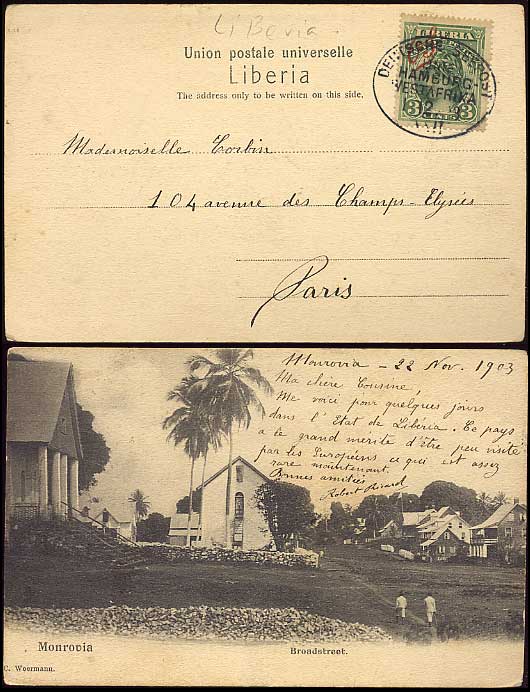 LiBeria.
Union postale universelle
Liberia
The address only to be written on this side.
LIBERIA
DEUTSCHE SEEPOST
HAMBURG-
WESTAFRIKA
XXII
3 CENTS 3
Mademoiselle Corbin
104 avenue des Champs-Elysées
Paris
Monrovia - 22 Nov. 1903
Ma chère Cousine,
Me voici pour quelques jours
dans l'Etat de Liberia. Ce pays
a le grand mérite d'être peu visité
par les Européens ce qui est assez
rare maintenant.
Bonnes amitiés
Robert
Monrovia
Broadstreet.
C. Woermann.